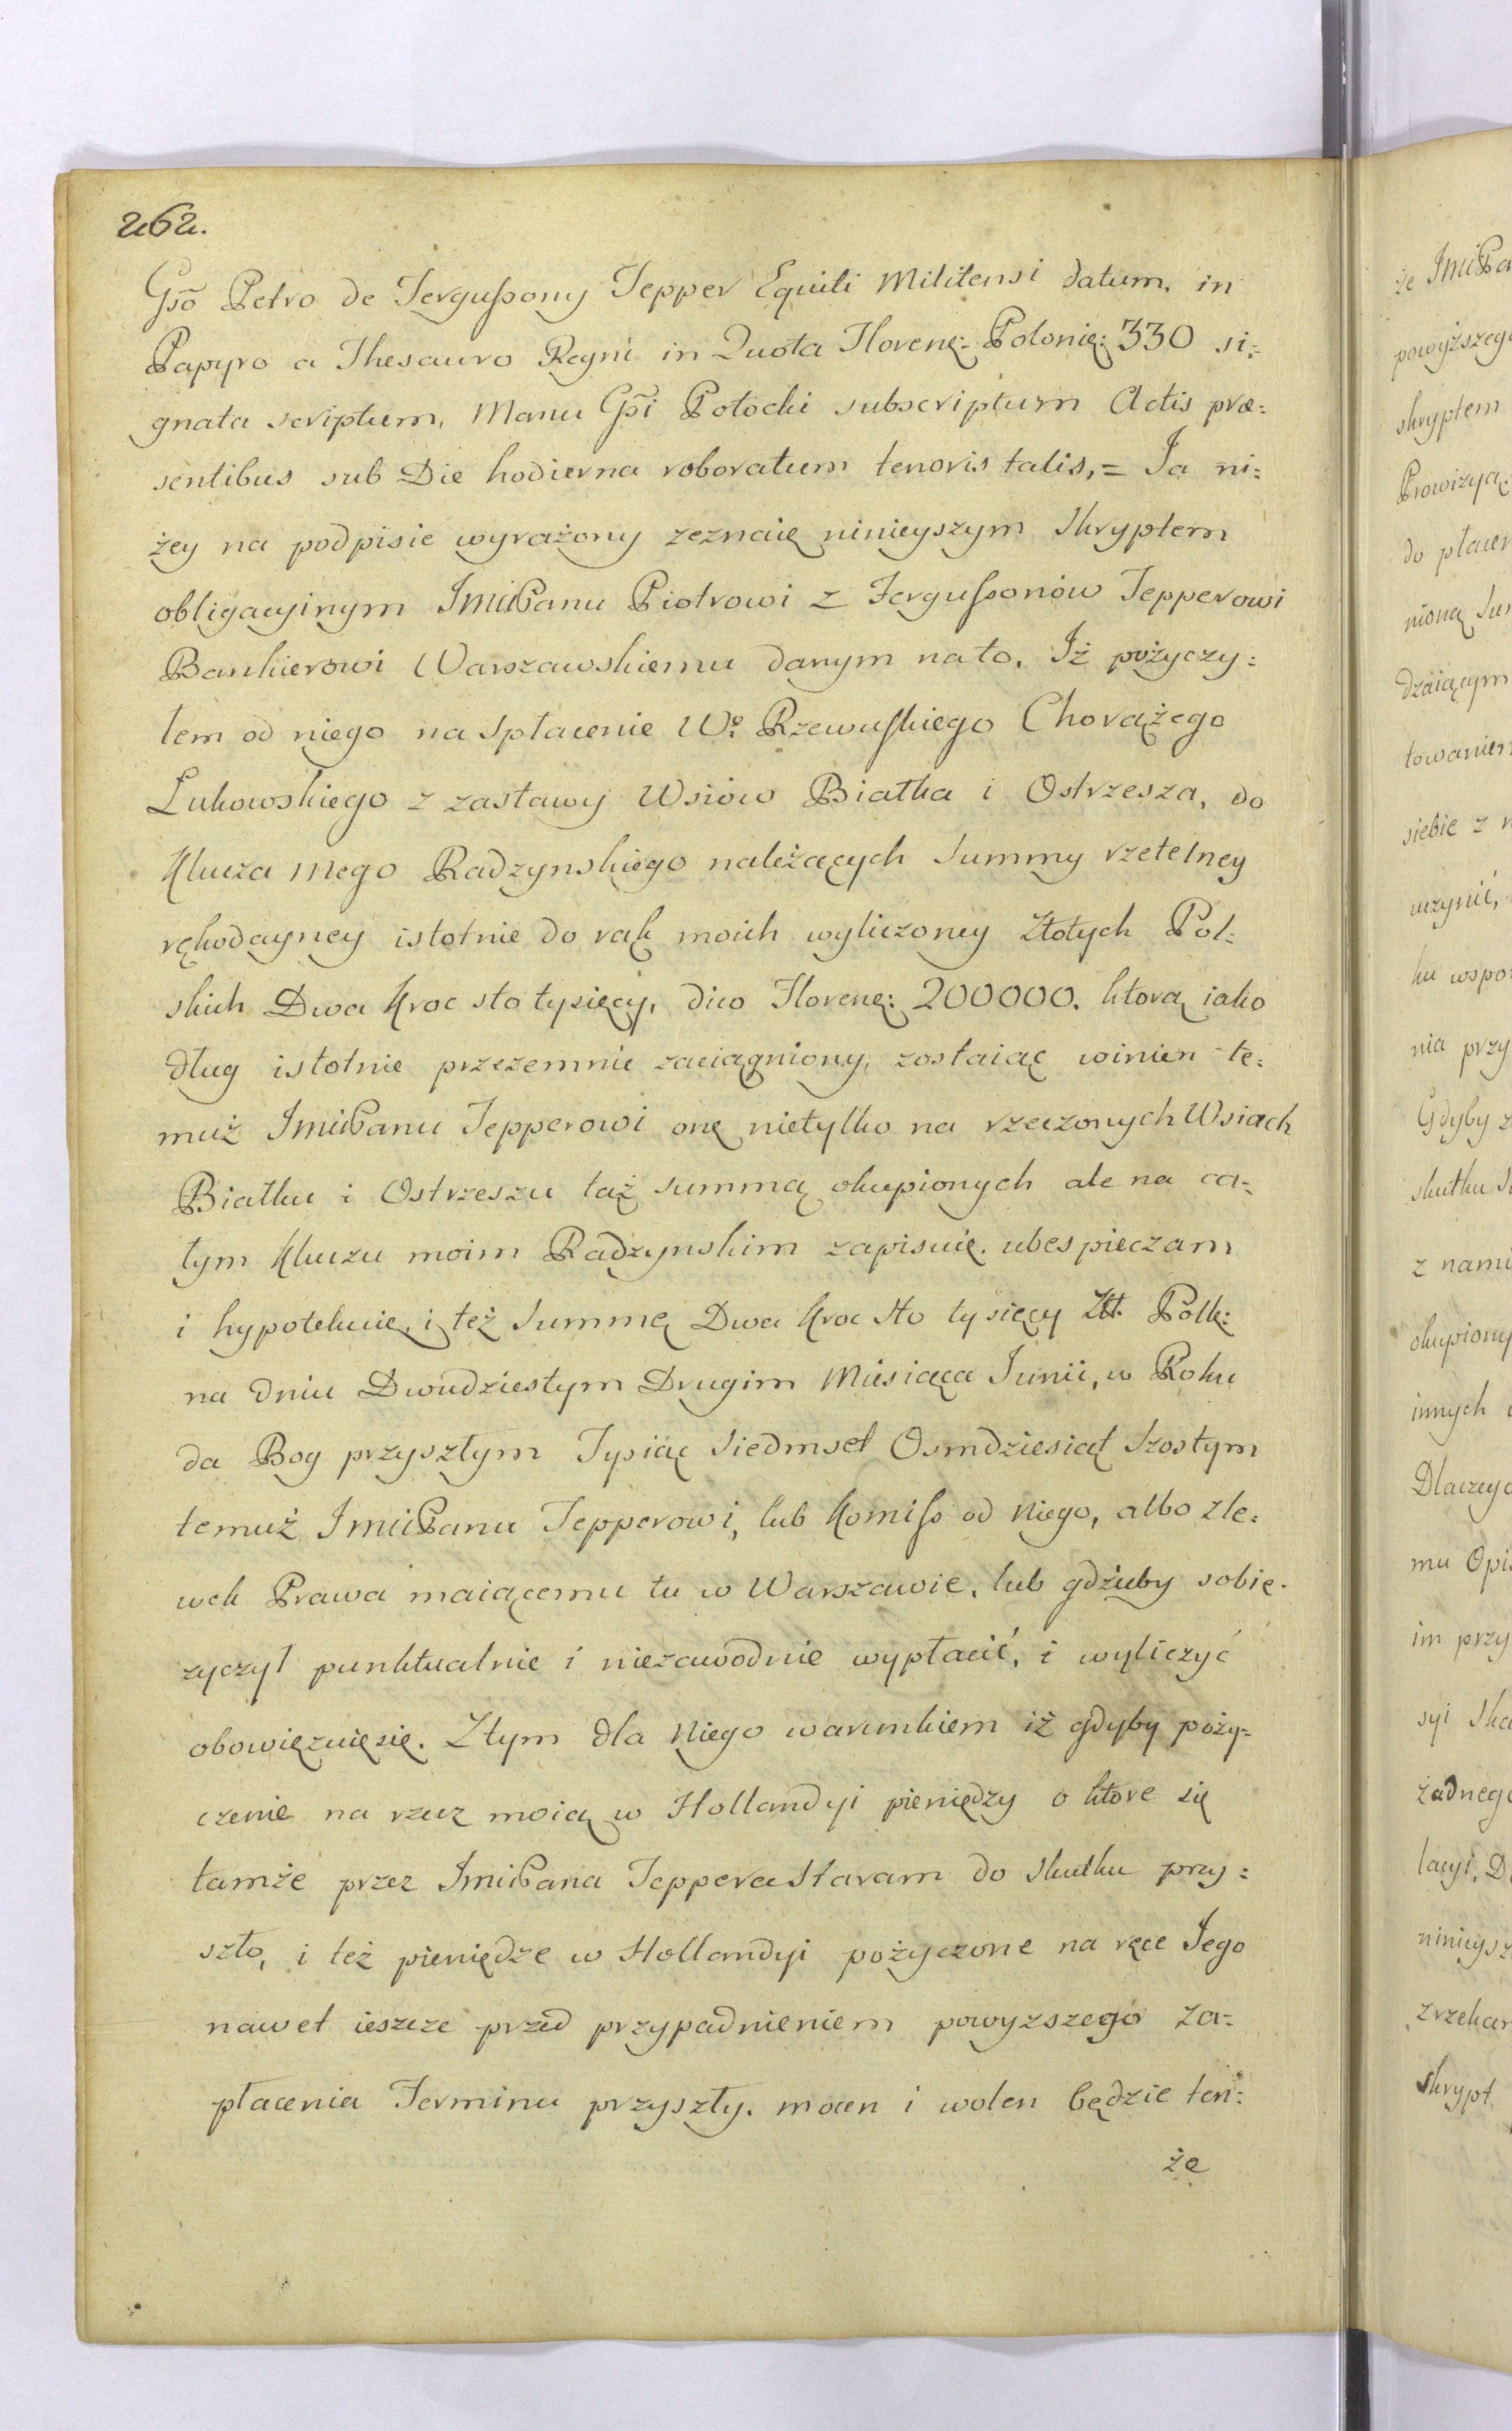 262.
Gso Petro de Fergussony Tepper Equiti Militensi datum, in
Papyro a Thesauro Regni in Quota Florenę: Polonię: 330 si:
gnata scriptum, Manu Gsi Potocki subscriptum Actis præ:
sentibus sub Die hodierna roboratum tenoris talis, = Ja ni:
żey na podpisie wyrażony zeznaię ninieyszym Skryptem
obligacyinym ImciPanu Piotrowi z Fergussonów Tepperowi
Bankierowi Warszawskiemu danym na to, Iż pożyczy:
łem od niego na spłacenie Wo: Rzewuskiego Chorążego
Łukowskiego z zastawy Wsiów Białka i Ostrzesza, do
Klucza mego Radzynskiego należących Summy rzetelney
rękodayney istotnie do rąk moich wyliczoney Złotych Pol:
skich Dwa kroc sto tysięcy, dico Florenę: 200000. ktorą iako
dług istotnie przezemnie zaciągniony, zostaiąc winien te:
muż ImciPanu Tepperowi onę nietylko na rzeczonych Wsiach
Białku i Ostrzeszu taż summą okupionych ale na ca:
łym Kluczu moim Radzynskim zapisuię, ubespieczam
i hypotekuię, i też Summę Dwa kroc sto tysięcy Złł. Polk:
na dniu Dwudziestym Drugim Miesiąca Junii, w Roku
da Bog przyszłym Tysiąc Siedmset Osmdziesiąt Szostym
temuż ImciPanu Tepperowi, lub Komiss od Niego, albo zle:
wek Prawa maiącemu tu w Warszawie, lub gdzieby sobie
zyczył punktualnie i niezawodnie wypłacić, i wyliczyć
obowięzuięsię. Ztym dla Niego warunkiem iż gdyby poży:
czenie na rzecz moią w Hollandyi pieniędzy o ktore się
tamże przez ImciPana Teppera staram do skutku przy:
szło, i też pieniędze w Hollandyi pożyczone na ręce Jego
nawet ieszcze przed przypadnieniem powyzszego za:
płacenia Terminu przyszły, mocen i wolen będzie ten:
że